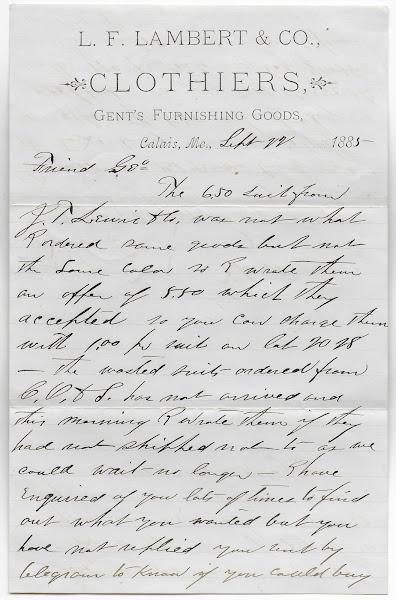 L. F. LAMBERT & CO.,
CLOTHIERS,
GENT'S FURNISHING GOODS,
Calais, Me., Sept 22 1885
Friend Geo
The 6.50 suit from
J. T. Lewis & Co, was not what
I ordered same goods but not
the same color so I wrote them
an offer of 5.50 which they
accepted so you can charge them
with 1.00 pr suit on Lot 2028
— the wasted suits ordered from
C. C. & S. has not arrived and
this morning I wrote them if they
had not shipped not to as we
could wait no longer — I have
Enquired of you lots of times to find
out what you wanted but you
have not replied you sent by
telegram to know if you could buy